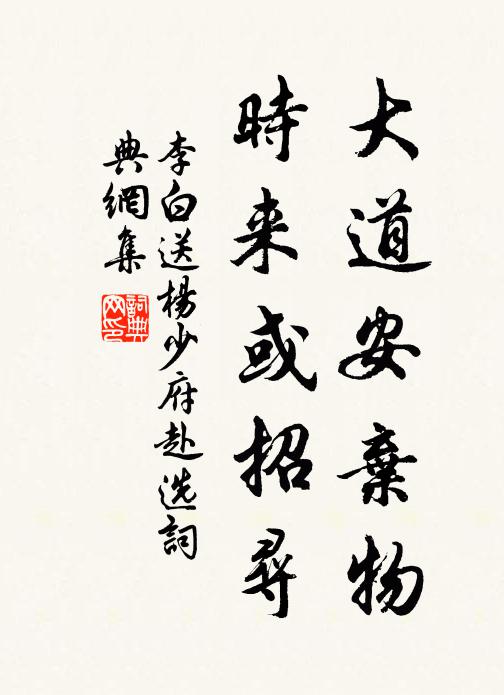 大道安棄物
時来或招尋
李白送楊少府赴选詞
典網集
詞典
网印